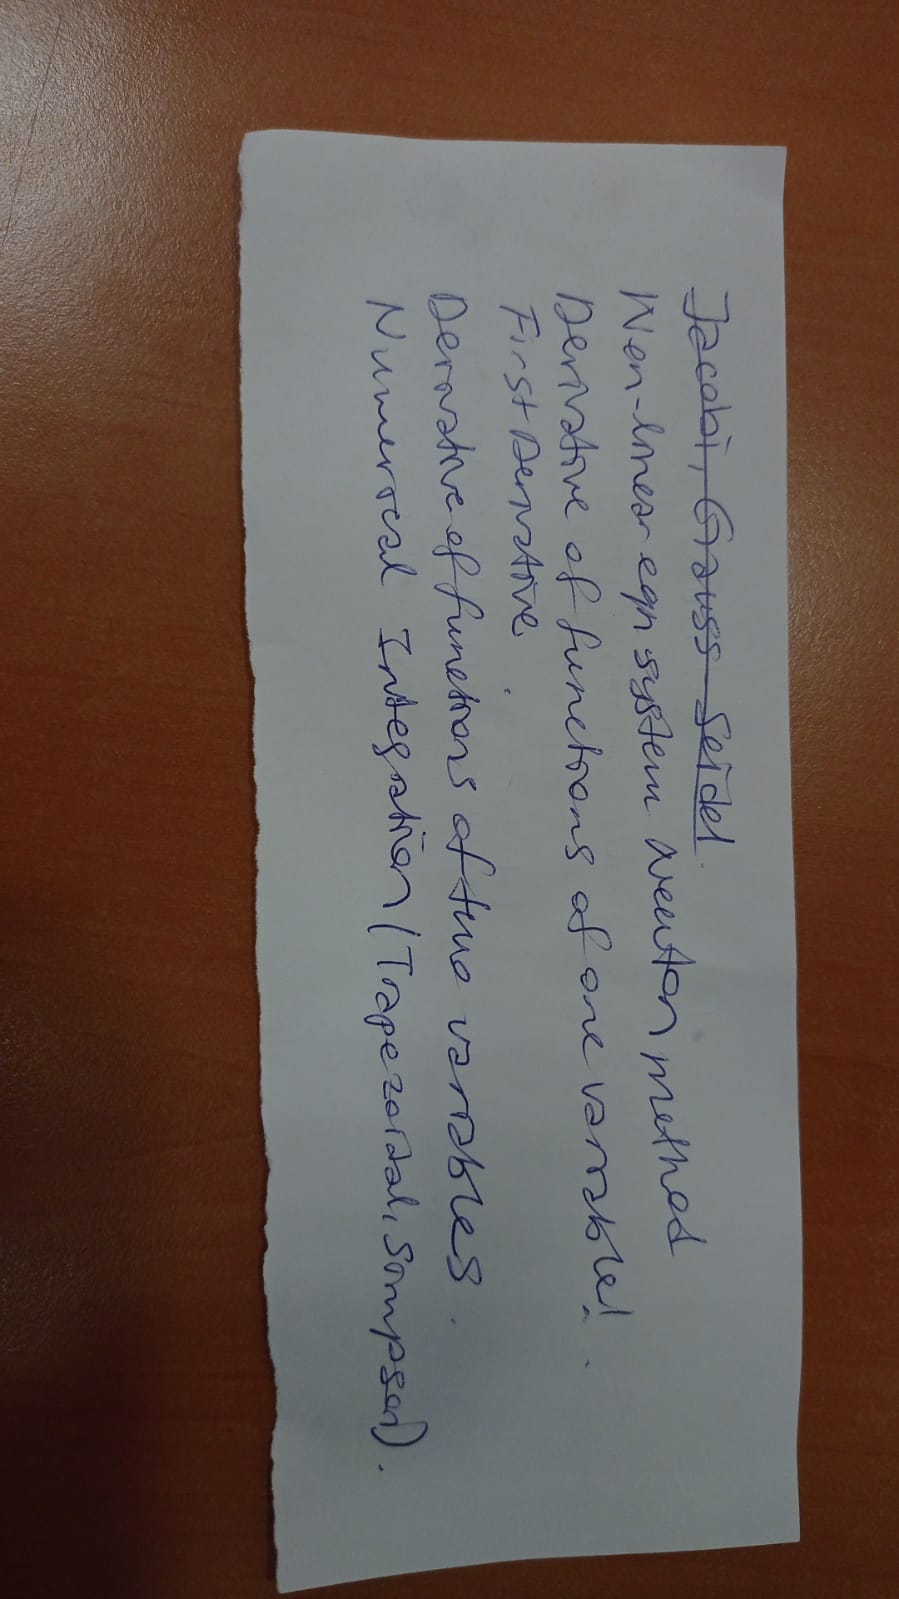 Jacobi, Gauss Seidel
Non-linear eqn system Newton method
Derivative of functions of one variable!
First Derivative
Derivative of functions of two variables
Numerical Integration (Trapezoidal, Simpson).